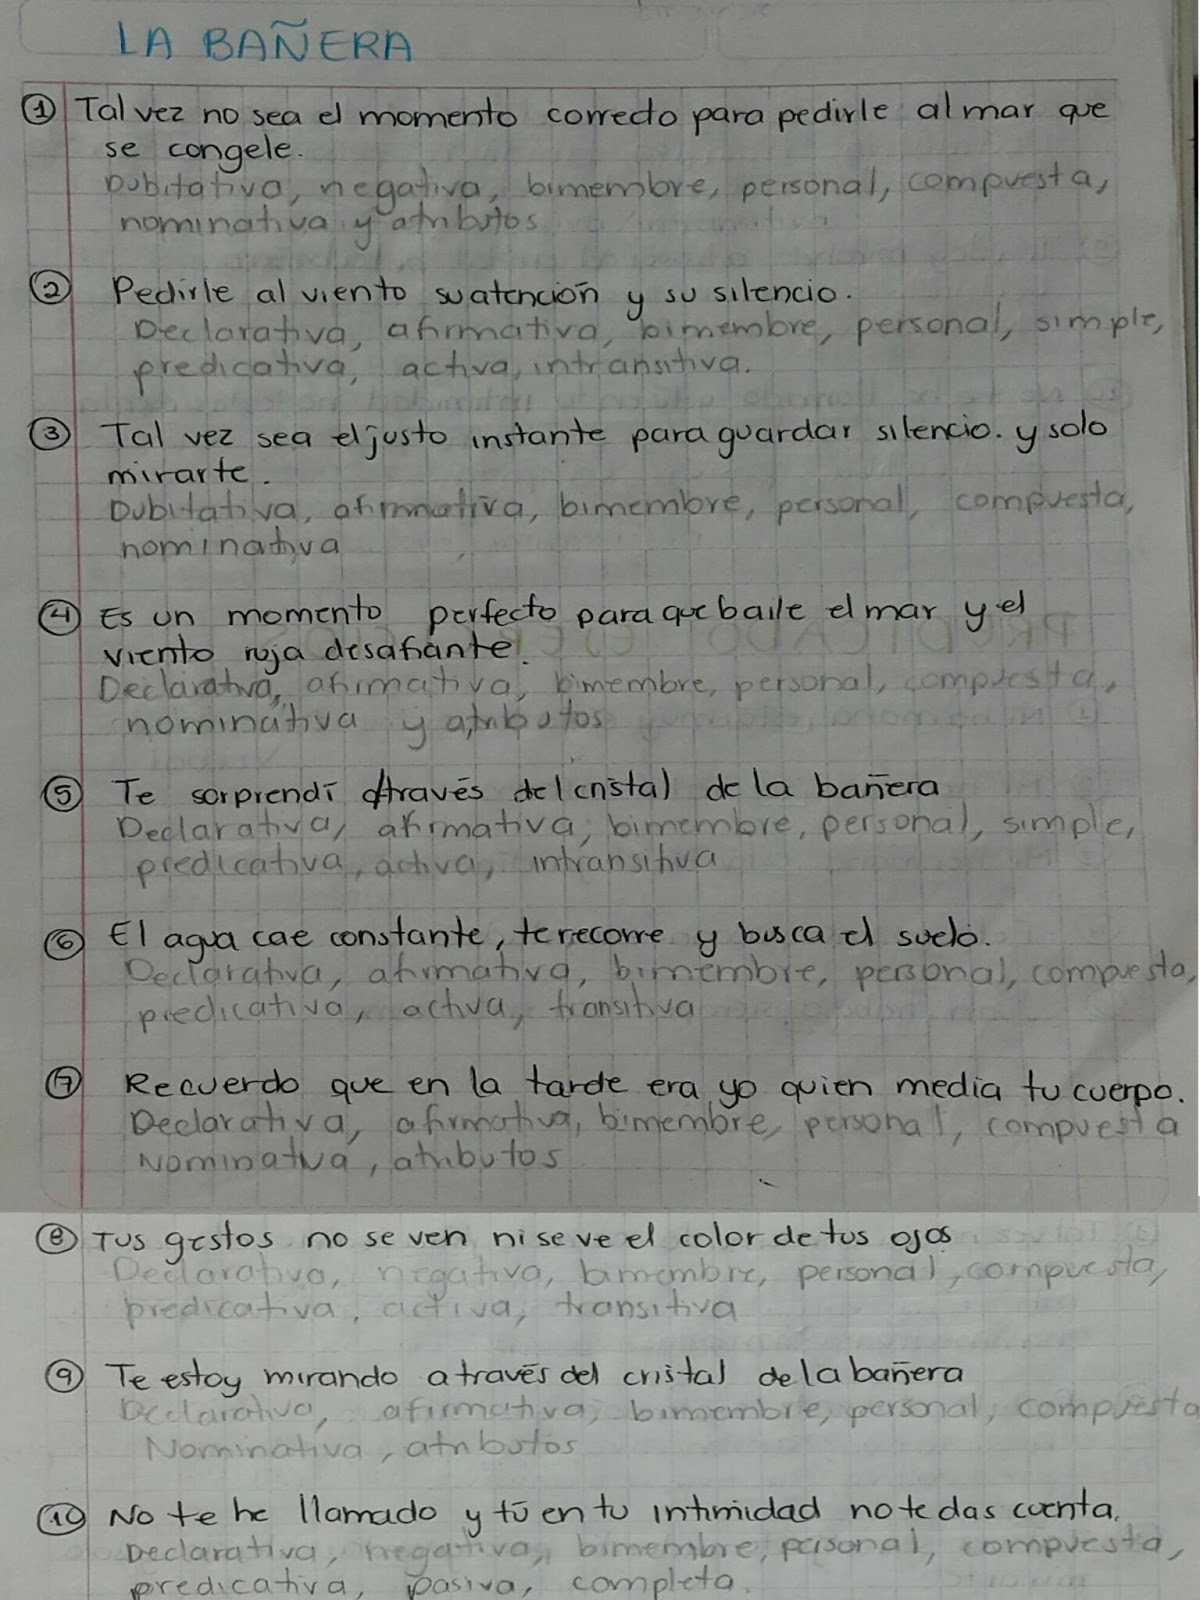 LA BAÑERA
① Tal vez no sea el momento correcto para pedirle al mar que
se congele.
Dubitativa, negativa, bimembre, personal, compuesta,
nominativa y atributos
② Pedirle al viento su atención y su silencio.
Declarativa, afirmativa, bimembre, personal, simple,
predicativa, activa, intransitiva.
③ Tal vez sea el justo instante para guardar silencio. y solo
mirarte.
Dubitativa, afirmativa, bimembre, personal, compuesta,
nominativa
④ Es un momento perfecto para que baile el mar y el
viento ruja desafiante.
Declarativa, afirmativa, bimembre, personal, compuesta,
nominativa y atributos
⑤ Te sorprendí através del cristal de la bañera
Declarativa, afirmativa, bimembre, personal, simple,
predicativa, activa, intransitiva
⑥ El agua cae constante, te recorre y busca el suelo.
Declarativa, afirmativa, bimembre, personal, compuesta,
predicativa, activa, transitiva
⑦ Recuerdo que en la tarde era yo quien media tu cuerpo.
Declarativa, afirmativa, bimembre, personal, compuesta
Nominativa, atributos
⑧ Tus gestos no se ven ni se ve el color de tus ojos
Declarativa, negativa, bimembre, personal, compuesta,
predicativa, activa, transitiva
⑨ Te estoy mirando a través del cristal de la bañera
Declarativa, afirmativa, bimembre, personal, compuesta
Nominativa, atributos
⑩ No te he llamado y tú en tu intimidad no te das cuenta.
Declarativa, negativa, bimembre, personal, compuesta,
predicativa, pasiva, completa.